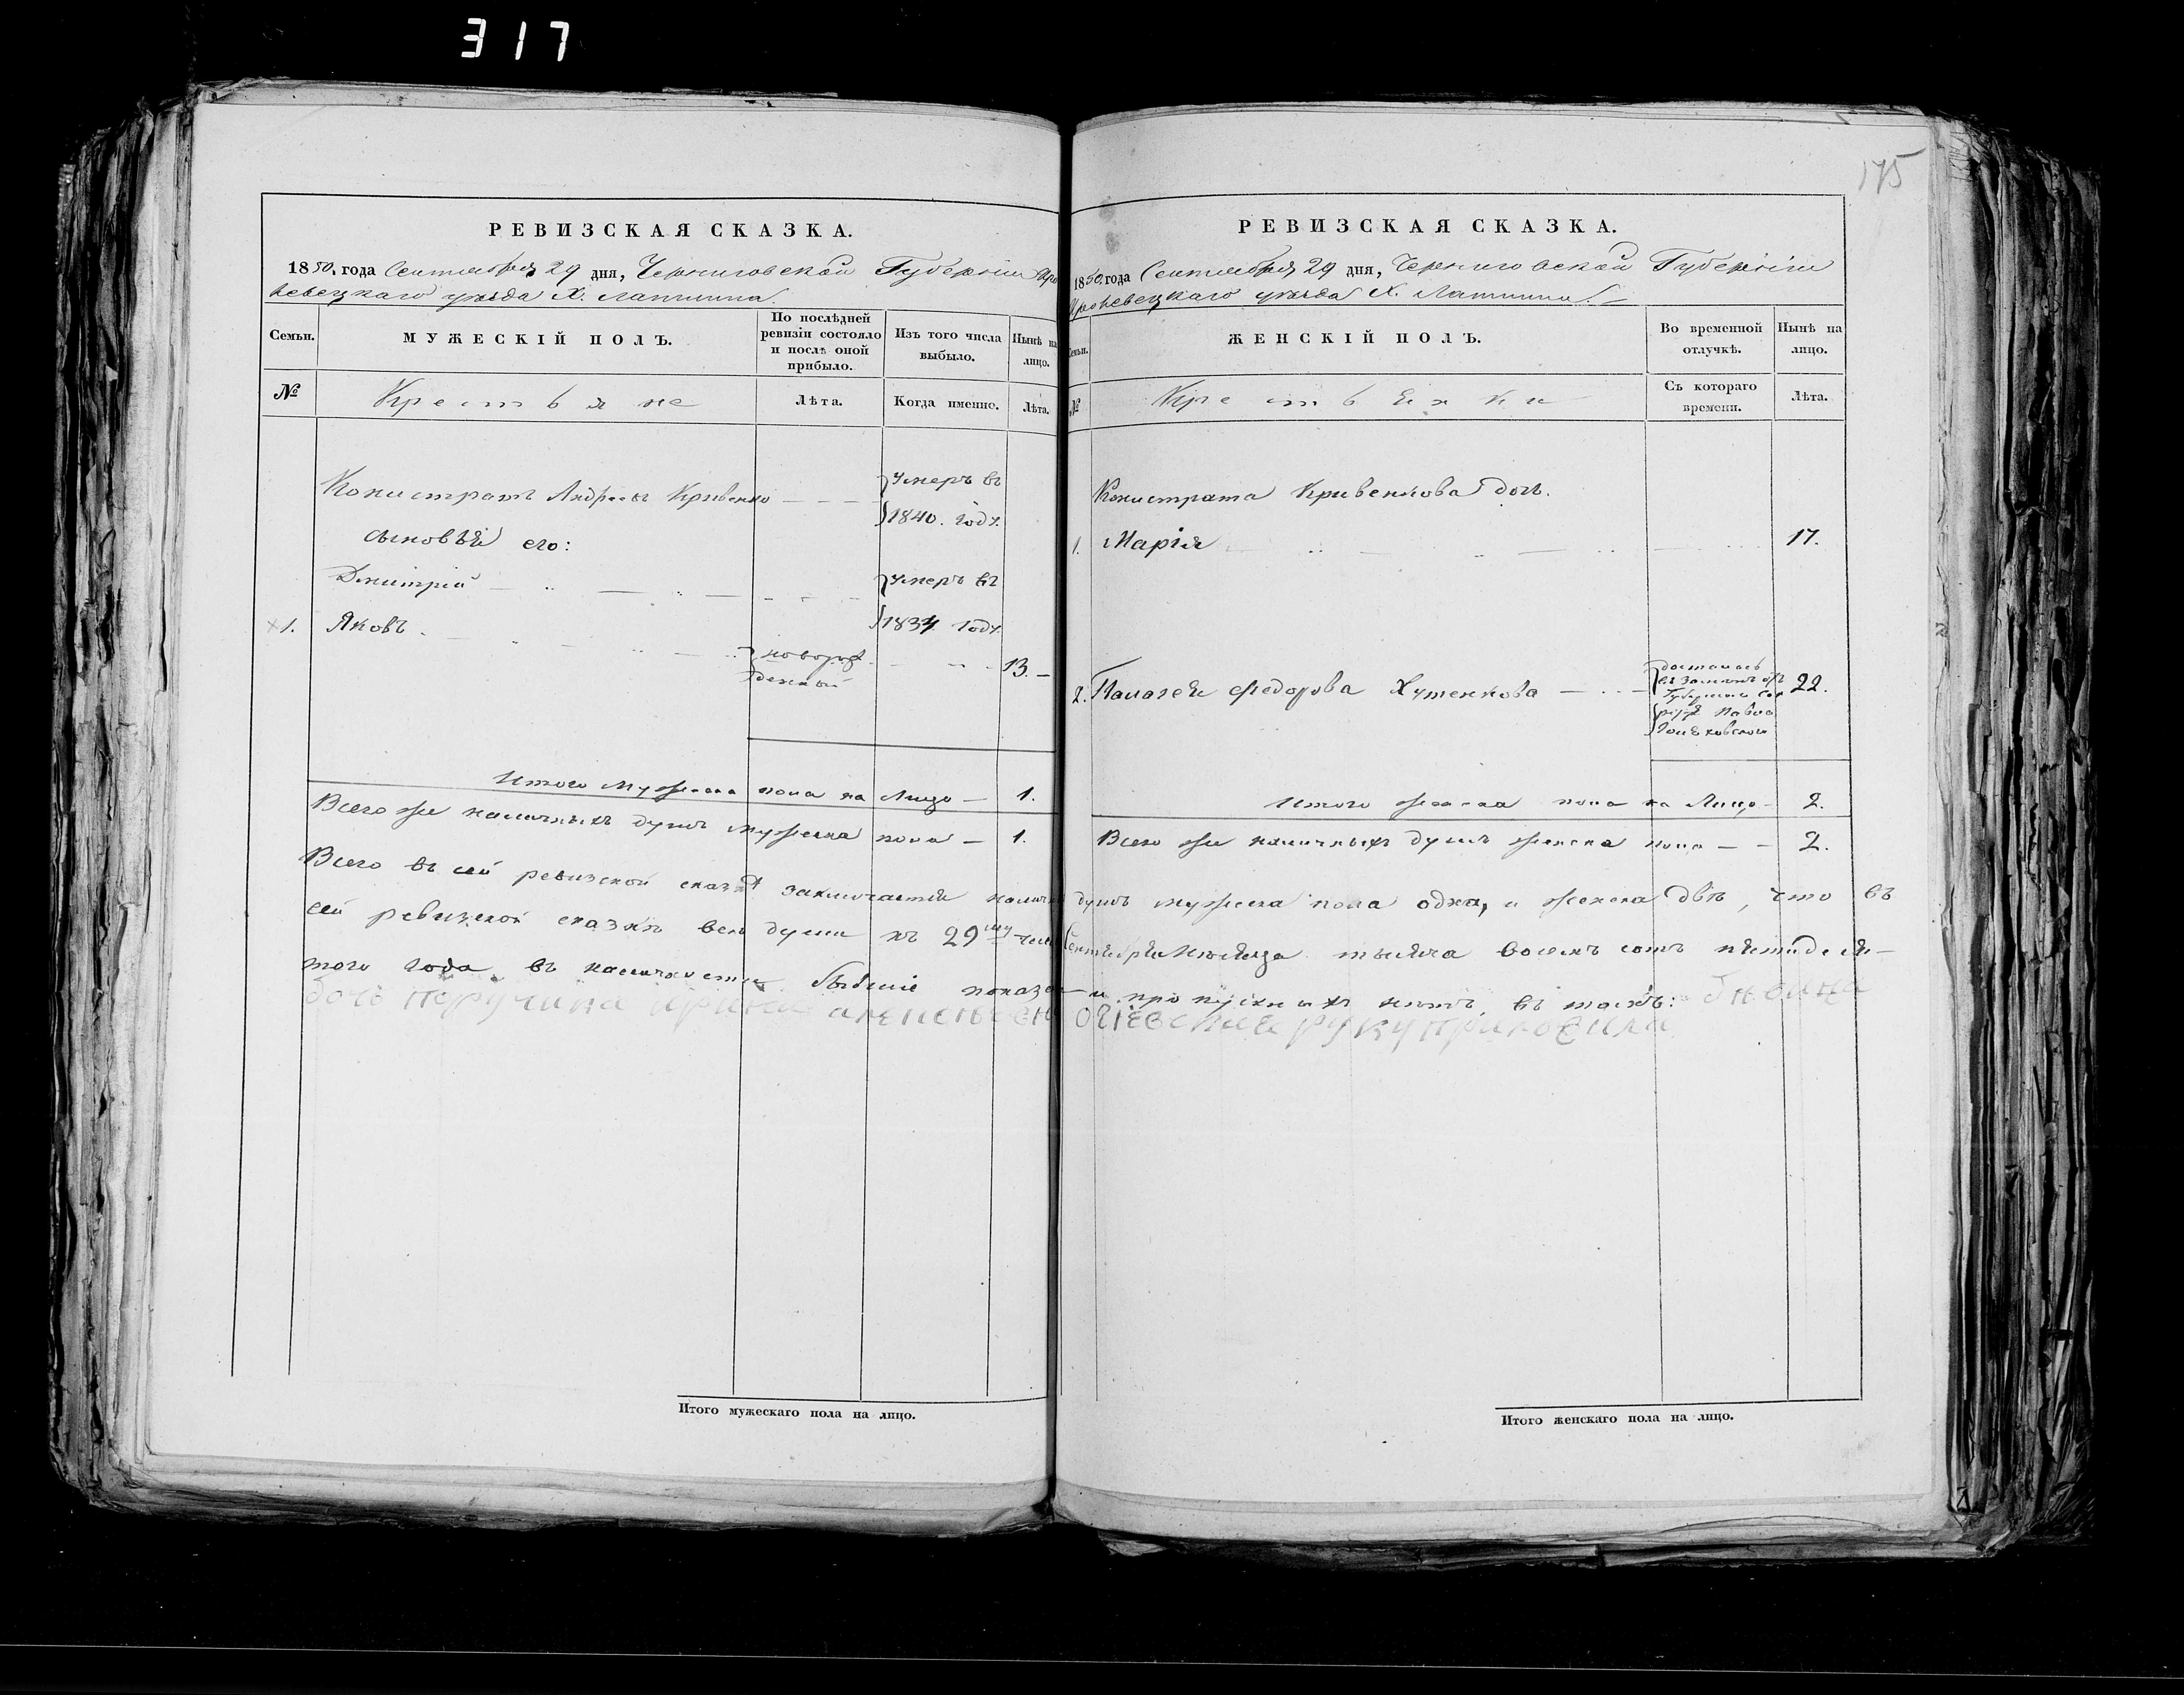 317
РЕВИЗСКАЯ СКАЗКА.
1850. года Сентября 29 дня, Черниговской Губерніи Кро
левецкаго уѣзда Х. Лапшина.
Семьи.
МУЖЕСКІЙ ПОЛЪ.
По послѣдней ревизіи состояло и послѣ оной прибыло.
Изъ того числа выбыло.
Нынѣ на лицо.
№
Крестьяне
Лѣта.
Когда именно.
Лѣта.
Конистратъ Андреевъ Кривенко
Умеръ въ
1840. году.
сыновья его:
Дмитрій
Умеръ въ
1834 году.
1. Яковъ
новорож
денный
13.
Итого мужеска пола на Лицо 1.
Всего же наличныхъ душъ мужеска пола 1.
175
РЕВИЗСКАЯ СКАЗКА.
1850. года Сентября 29 дня, Черниговской Губерніи
Кролевецкаго уѣзда Х. Лапшина.
Семьи.
ЖЕНСКІЙ ПОЛЪ.
Во временной отлучкѣ.
Нынѣ на лицо.
№
Крестьянки
Съ котораго времени.
Лѣта.
Конистрата Кривенкова дочь.
1. Марія 17.
2. Палагея Федорова Хутенкова
досталась
Павла
22.
Итого женска пола на Лицо 2.
Всего же наличныхъ душъ женска пола 2.
Всего въ сей ревизской сказкѣ заключается наличн душъ мужеска пола одна, и женска двѣ, что въ
сей ревизской сказкѣ всѣ души къ 29му числ Сентября Мѣсяца тысяча восемь сотъ пятидеся-
того года въ наличности бывшіе показа и пропускныхъ нѣтъ, въ томъ:
дочь Поручика руку приложила
Итого мужескаго пола на лицо.
Итого женскаго пола на лицо.